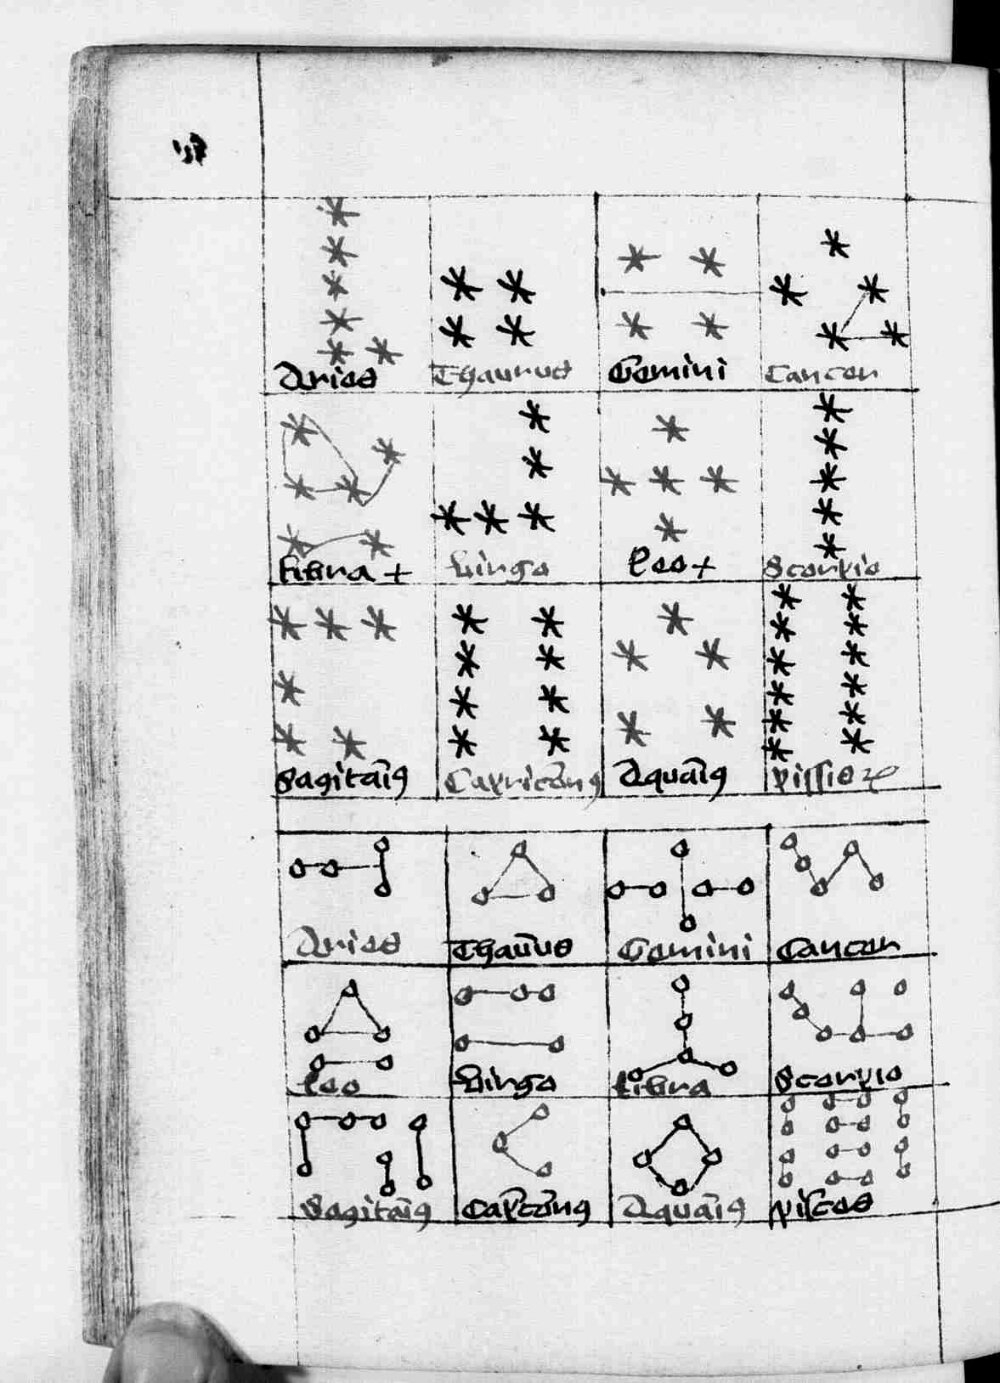 Aries Thaurus Gemini Cancer
Libra + Virgo leo + Scorpio
Sagitari9 Capricorn9 Aquari9 Pisses
Aries Thaurus Gemini Cancer
leo Virgo Libra Scorpio
Sagitari9 Capcorn9 Aquari9 pisces